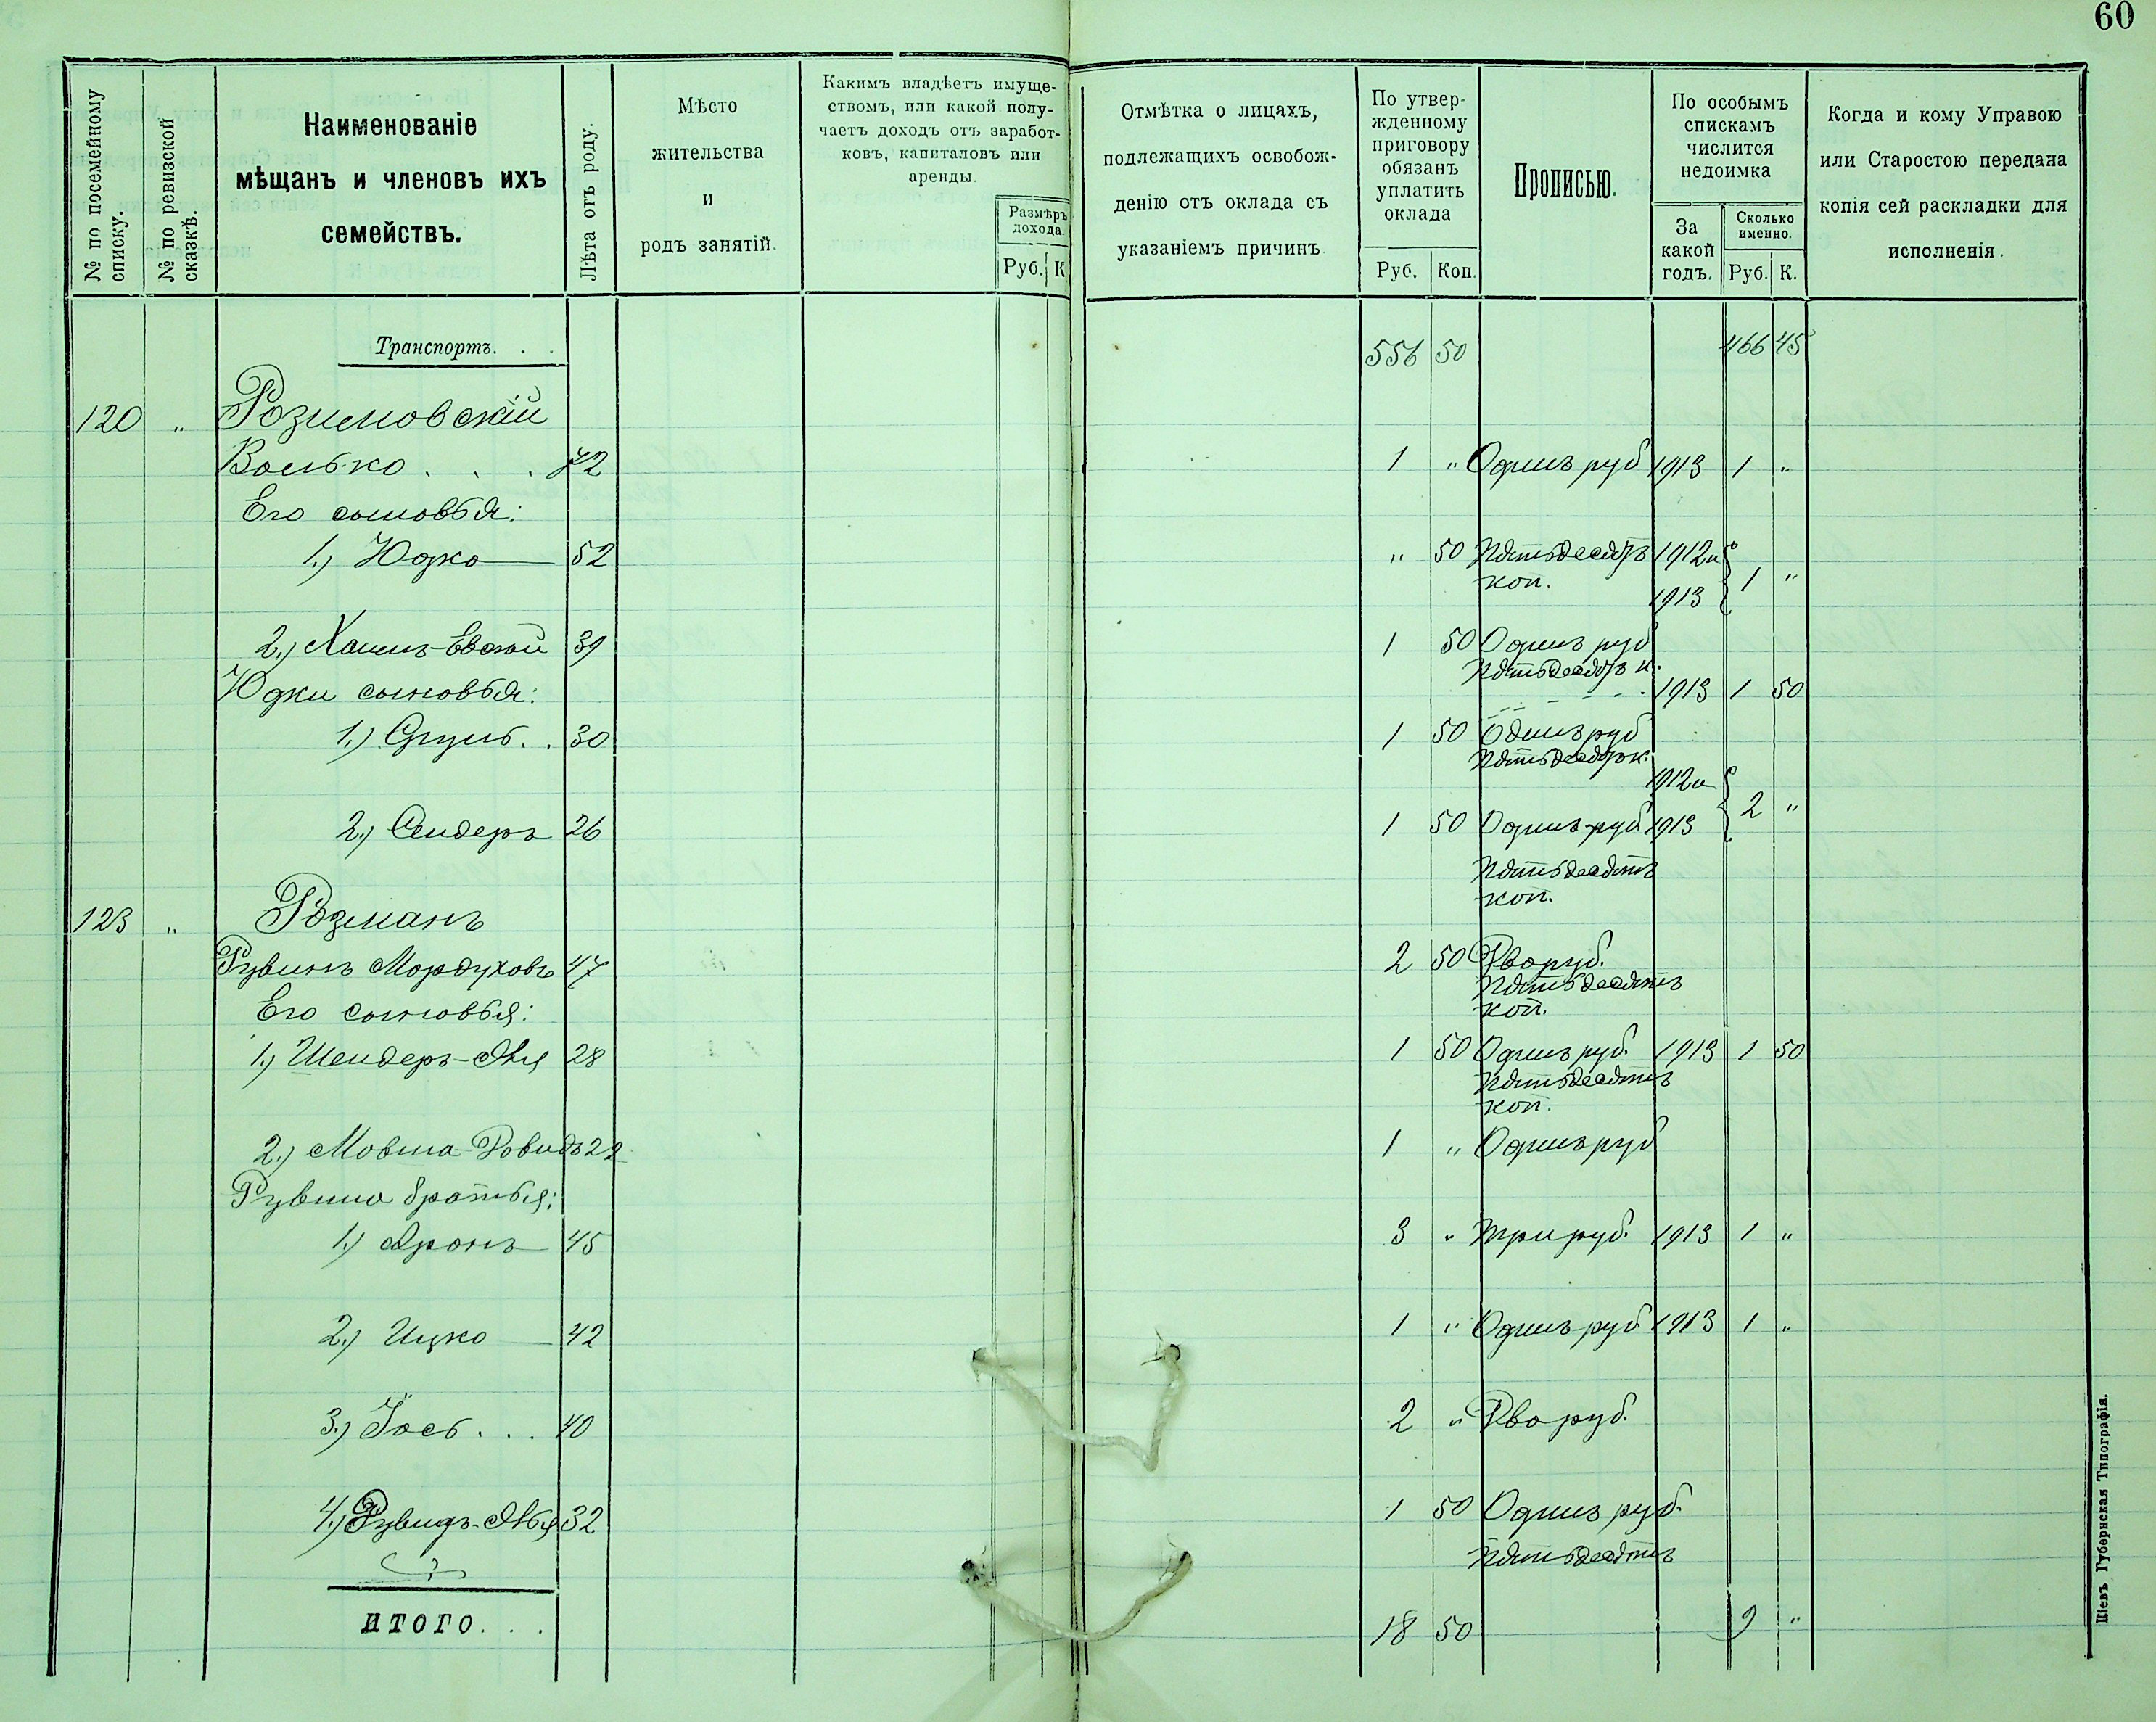 60
№ по посемейному списку.
№ по ревизской сказкѣ.
Наименованіе
мѣщанъ и членовъ ихъ
семействъ.
Лѣта отъ роду.
Мѣсто
жительства
и
родъ занятій.
Какимъ владѣетъ имуще-
ствомъ, или какой полу-
чаетъ доходъ отъ заработ-
ковъ, капиталовъ или
аренды.
Размѣръ
дохода.
Руб. К
Отмѣтка о лицахъ,
подлежащихъ освобож-
денію отъ оклада съ
указаніемъ причинъ.
По утвер-
жденному
приговору
обязанъ
уплатить
оклада
Руб. Коп.
Прописью.
По особымъ
спискамъ
числится
недоимка
За
какой
годъ.
Сколько
именно.
Руб. К.
Когда и кому Управою
или Старостою передана
копія сей раскладки для
исполненія.
Транспортъ. . . 556 50 466 45
120 " Розиновскій
Волько . . . 72 1 " Одинъ руб 1913 1 "
Его сыновья:
1.) Юдко 52 " 50 Пятьдесятъ 1912 и
коп. 1913 1 "
2.) Хаимъ- 39 1 50 Одинъ руб
Пятьдесятъ к.
Юдки сыновья: 1913 1 50
1.) Сруль . . 30 1 50 Одинъ руб
Пятьдесятъ к.
1912 и
2.) Сендеръ 26 1 50 Одинъ руб 1913 2 "
Пятьдесятъ
коп.
123 " Розманъ
Рувинъ Мордуховъ 47 2 50 Два руб.
Пятьдесятъ
коп.
Его сыновья:
1.) Шендеръ-Лья 28 1 50 Одинъ руб. 1913 1 50
Пятьдесятъ
коп.
2.) Мовша Довидъ 22 1 " Одинъ руб
Рувина братья:
1.) Аронъ 45 3 " Три руб. 1913 1 "
2.) Ицко 42 1 " Одинъ руб 1913 1 "
3.) Іось . . . 40 2 " Два руб.
4.) 32 1 50 Одинъ руб.
Пятьдесятъ
ИТОГО. . . 18 50 9 "
Кіевъ Губернская Типографія.